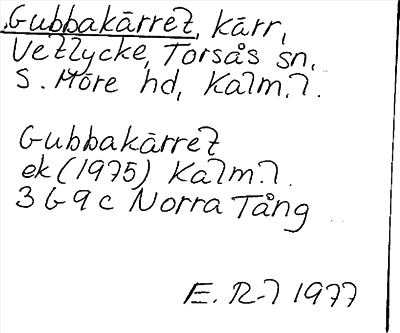 Gubbakärret, kärr,
Vetlycke, Torsås sn.
S. Möre hd, Kalm. l.
Gubbakärret
ek (1975) Kalm. l.
3 G 9 c Norra Tång
E. R-l 1977